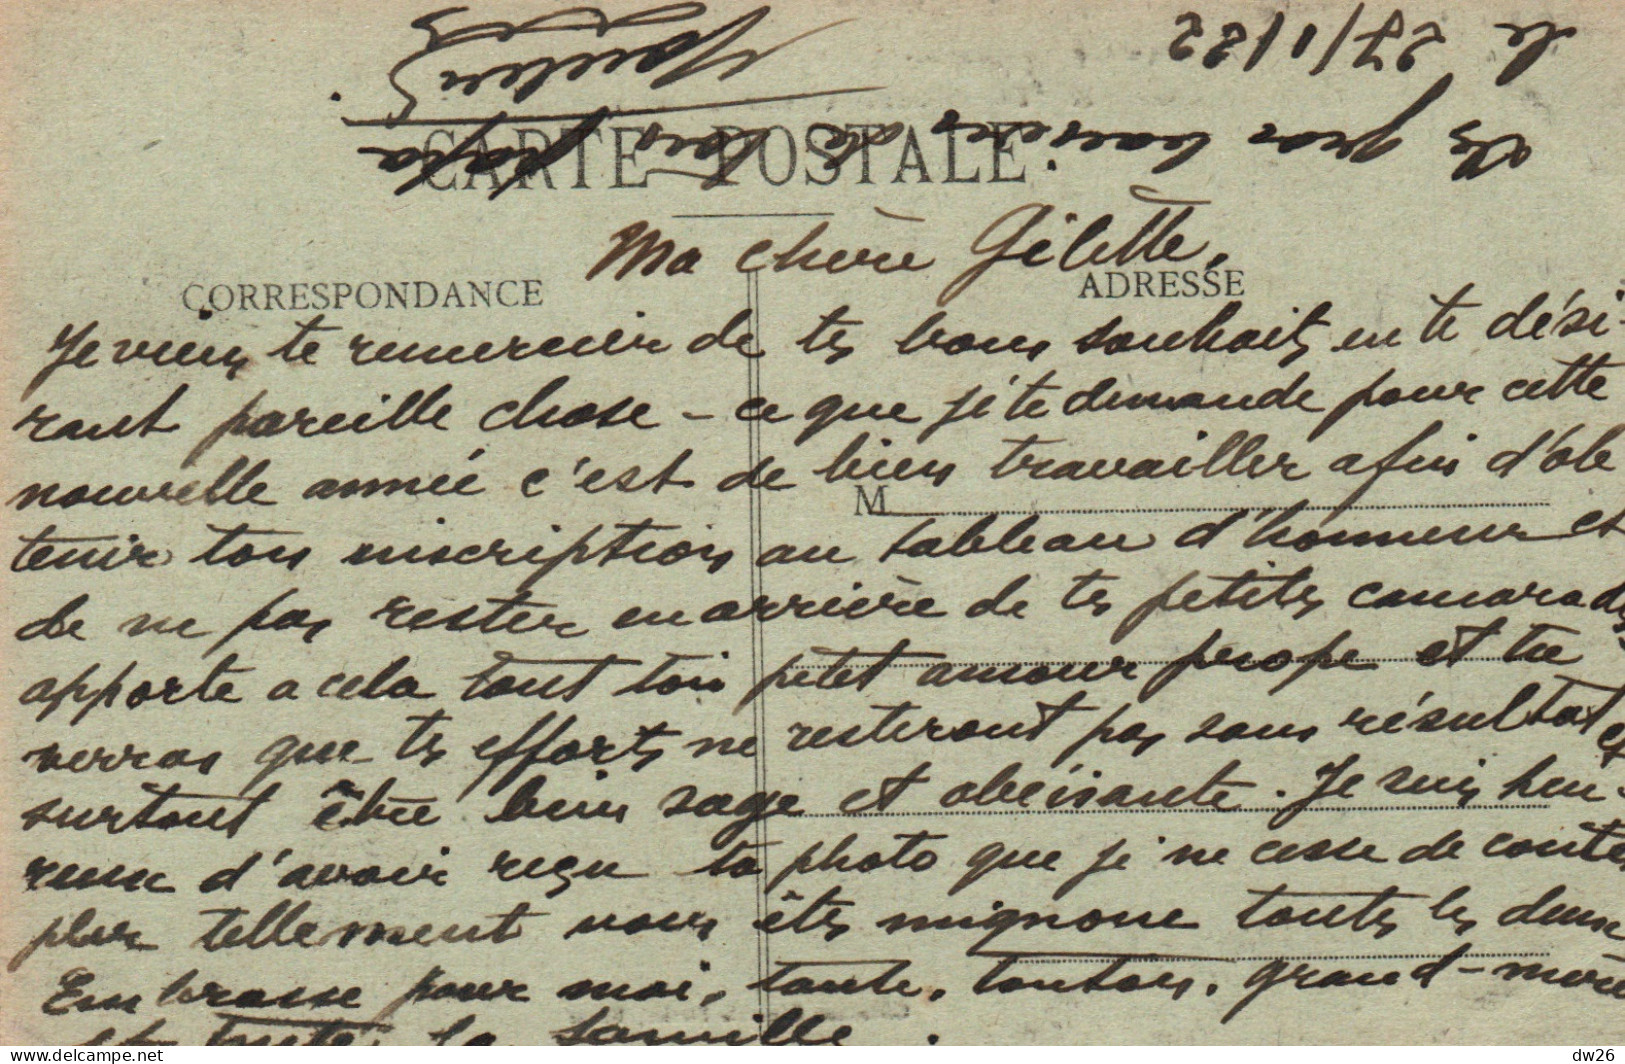 le 27/1/22
CARTE POSTALE
Ma chère Gilette,
CORRESPONDANCE
ADRESSE
Je viens te remercier de tes bons souhaits en te dési-
rant pareille chose - ce que je te demande pour cette
nouvelle année c'est de bien travailler afin d'ob
M
tenir ton inscription au tableau d'honneur et
de ne pas rester en arrière de tes petites camarades
apporte a cela tout ton petit amour propre et tu
verras que tes efforts ne resteront pas sans résultat et
surtout être bien sage et obéisante. Je suis heu-
reux d'avoir reçu ta photo que je ne cesse de contem
pler tellement vous êtes mignone toutes les deux
Embrasse pour moi, tante, tonton, grand-mère
et toute la famille.
Des gros baisers de ton papa
dw26